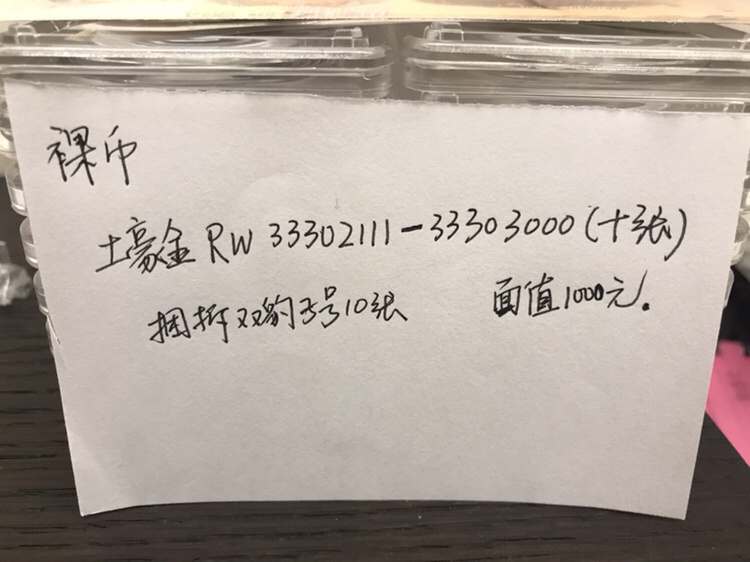 裸币
土豪金 RW 33302111-33303000(十张)
捆拆双豹子号10张 面值1000元.